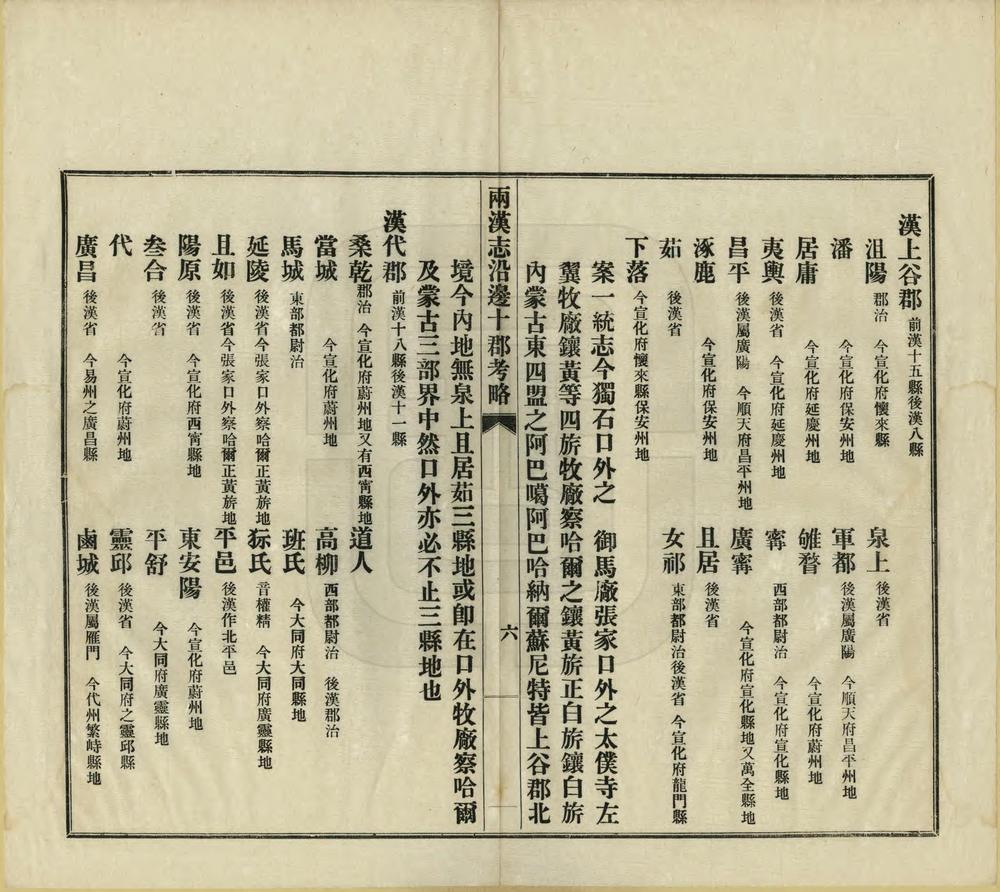 漢上谷郡 前漢十五縣後漢八縣
沮陽 郡治 今宣化府懷來縣 泉上 後漢省
潘 今宣化府保安州地 軍都 後漢屬廣陽 今順天府昌平州地
居庸 今宣化府延慶州地 雊瞀 今宣化府蔚州地
夷輿 後漢省 今宣化府延慶州地 寗 西部都尉治 今宣化府宣化縣地
昌平 後漢屬廣陽 今順天府昌平州地 廣寗 今宣化府宣化縣地又萬全縣地
涿鹿 今宣化府保安州地 且居 後漢省
茹 後漢省 女祁 東部都尉治後漢省 今宣化府龍門縣
下落 今宣化府懷來縣保安州地
案一統志今獨石口外之 御馬廠張家口外之太僕寺左
翼牧廠鑲黃等四旂牧廠察哈爾之鑲黃旂正白旂鑲白旂
內蒙古東四盟之阿巴噶阿巴哈納爾蘇尼特皆上谷郡北
兩漢志沿邊十郡考略
六
境今內地無泉上且居茹三縣地或卽在口外牧廠察哈爾
及蒙古三部界中然口外亦必不止三縣地也
漢代郡 前漢十八縣後漢十一縣
桑乾 郡治 今宣化府蔚州地又有西寗縣地 道人
當城 今宣化府蔚州地 高柳 西部都尉治 後漢郡治
馬城 東部都尉治 班氏 今大同府大同縣地
延陵 後漢省今張家口外察哈爾正黃旂地 狋氏 音權精 今大同府廣靈縣地
且如 後漢省今張家口外察哈爾正黃旂地 平邑 後漢作北平邑
陽原 後漢省 今宣化府西寗縣地 東安陽 今宣化府蔚州地
叁合 後漢省 平舒 今大同府廣靈縣地
代 今宣化府蔚州地 靈邱 後漢省 今大同府之靈邱縣
廣昌 後漢省 今易州之廣昌縣 鹵城 後漢屬雁門 今代州繁峙縣地